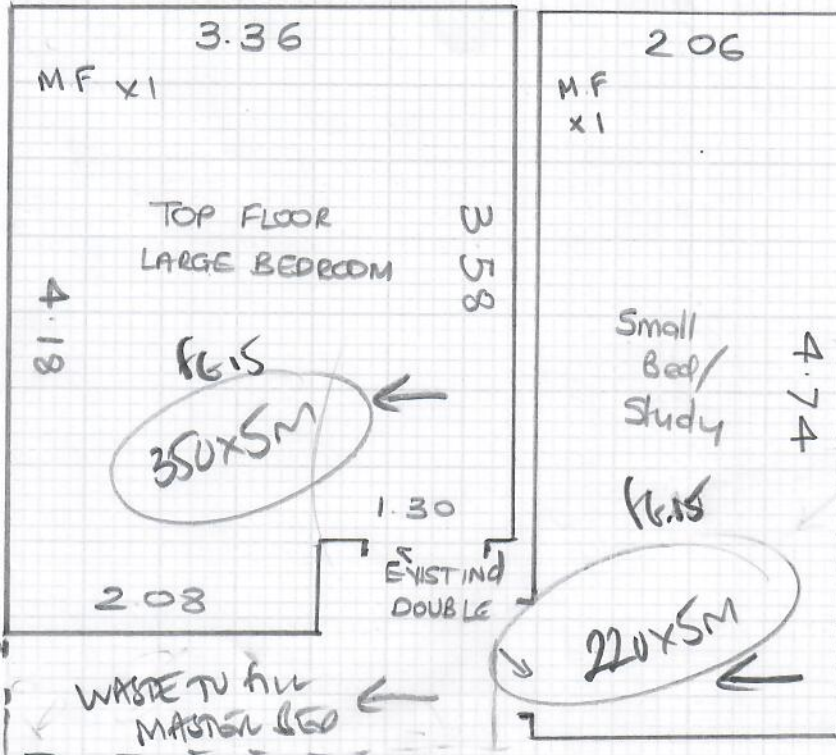 3.36
M.F x1
TOP FLOOR
LARGE BEDROOM
3.58
4.18
FG.15
350x5M
1.30
EXISTING
DOUBLE
2.08
WASTE TO FILL
MASTER BED
2.06
M.F
x1
Small
Bed/
Study
4.74
FG.15
220x5M